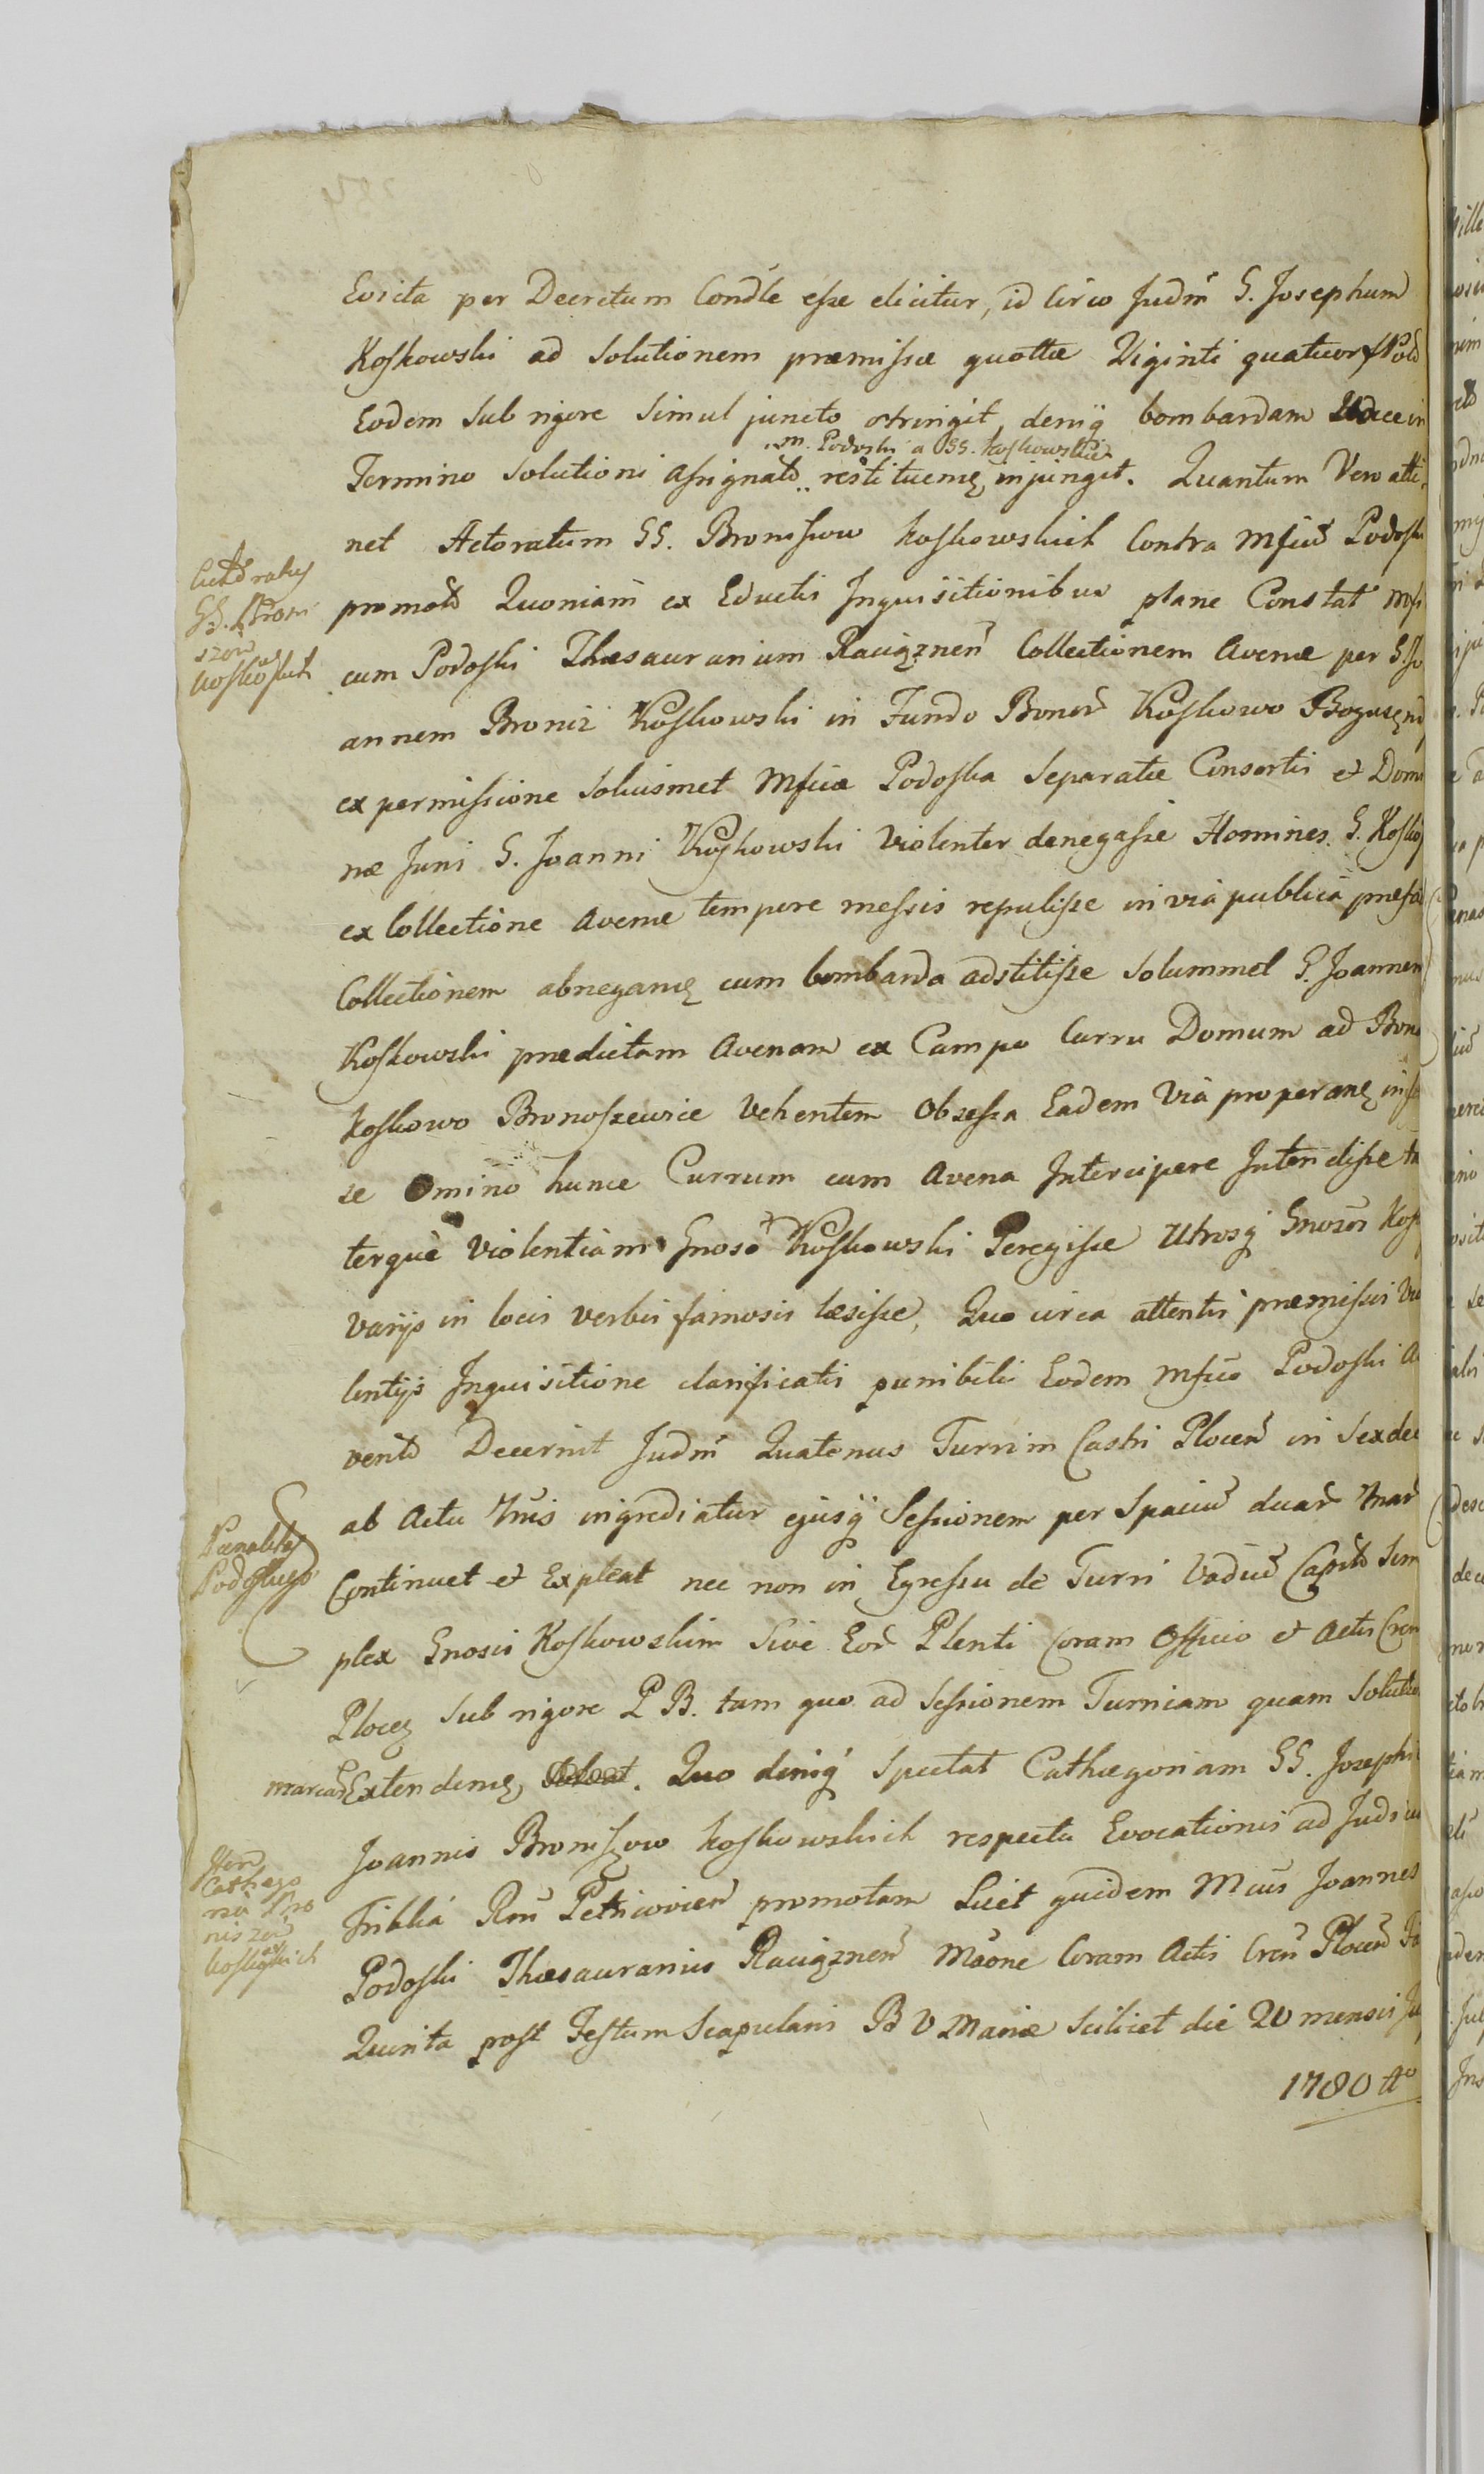 Evicta per Decretum Condle esse elicitur, id Circo Judm G. Josephum
Koskowski ad Solutionem præmissæ quottæ Viginti quatuor f Pold
Eodem Sub rigore Simul juncto stringit, deniq bombardam in
m. Podoski a GG. Koskowskich
Termino Solutioni assignato restituenę injungit. Quantum Vero atti-
net Actoratum GG. Broniszow Koskowskich Contra Mficu Podoski
promotu Quoniam ex Eductis Inquisitionibus plane Constat Mfi
cum Podoski Thesaurarium Raciąznen Collectionem Avenæ per G. Jo
annem Bronisz Koskowski in Fundo Bonor Koskowo Bogusę
ex permissione Soluismet Mficæ Podoska Separatæ Consortis et Domi
næ Juni G. Joanni Koskowski Violenter denegasse Homines G. Kosko
ex Collectione Avenæ tempore messis repulisse in via publica præfa
Collectionem abneganę cum bombarda adstitisse Solummet G. Joannem
Koskowski prædictam Avenam ex Campo Curru Domum ad Bona
Koskowo Bronoszewice Vehentem Obsessa Eadem Via properanę
se Omino hunce Currum cum Avena Intercipere Intendisse ta
terque Violentiam Gnoso Koskowski Peregisse Utrosq Gnosos Kosk
Varijs in locis verbis famosis læsisse, Quo circa attentis præmissis Vio
lentijs Inquisitione clarificatis punibilis Eodem Mfico Podoski
vento Decernit Judm Quatenus Turrim Castri Plocen in Sex dec
ab Actu Hnis ingrediatur ejusq Sessionem per Spaciu duar Hnar
Continuet et Expleat nec non in Egressu de Turri Vadiu Capito Sim
plex Gnosis Koskowskim Sive Eor Plenti Coram Officio et Actis Cren
Plocę Sub rigore P B. tam quo ad Sessionem Turniam quam Solutio
marcar Extendenę Quo deniq Spectat Cathegoriam GG. Josephi
Joannis Broniszow Koskowskich respectu Evocationis ad Judiciu
Triblia Rni Petricovien promotam Licet quidem Mcus Joannes
Podoski Thesaurarius Raciąznen Maone Coram Actis Cren Plocen
Quinta post Festum Scapularis B V Mariæ Scilicet die 20 mensis Ju
1780 Ao
GG. Broni
szow
Koskoskich
Pœnalitas
Podoskiego
Cathego
ria Bro
niszow
Koskoskich